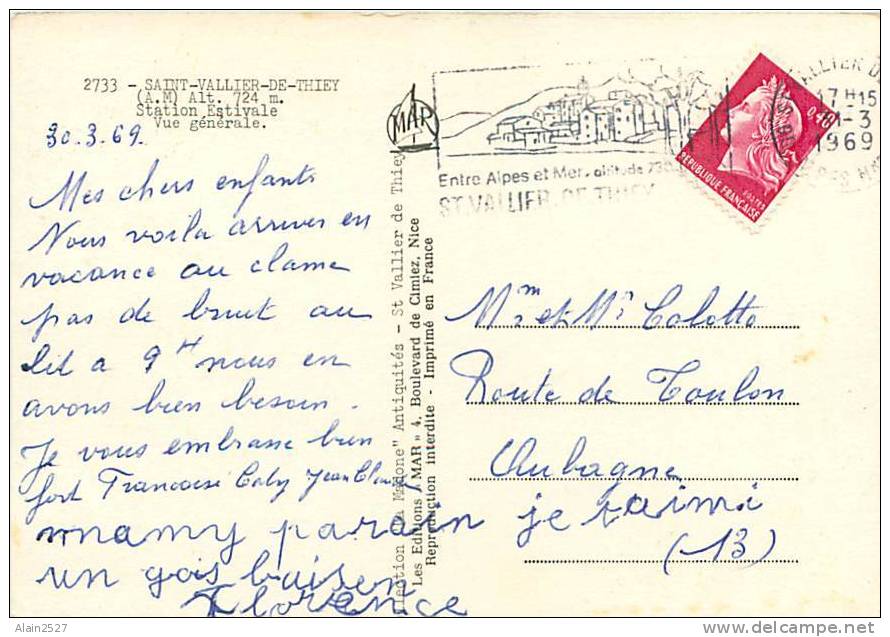 2733 - SAINT-VALLIER-DE-THIEY
(A.M) Alt. 724 m.
Station Estivale
Vue générale.
30.3.69.
Mes chers enfants
Nous voila arriver en
vacance au clame
pas de bruit au
lit a 9 H nous en
avons bien besoin.
Je vous embrasse bien
fort Francoise Caby Jean Clau
mamy parain je t'aimi
un gois baisen
Florence
MAR
lection "La Madone" Antiquités - St Vallier de Thiey
Les Editions "MAR" 4, Boulevard de Cimiez, Nice
Reproduction interdite - Imprimé en France
Entre Alpes et Mer. altitude 730
ST. VALLIER. DE THIEY
0,40
REPUBLIQUE FRANÇAISE
POSTES
VALLIER D
17H15
1-3
1969
Mme et Mr Colotto
Route de Toulon
Aubagne
(13)
Alain2527
delcampe.net